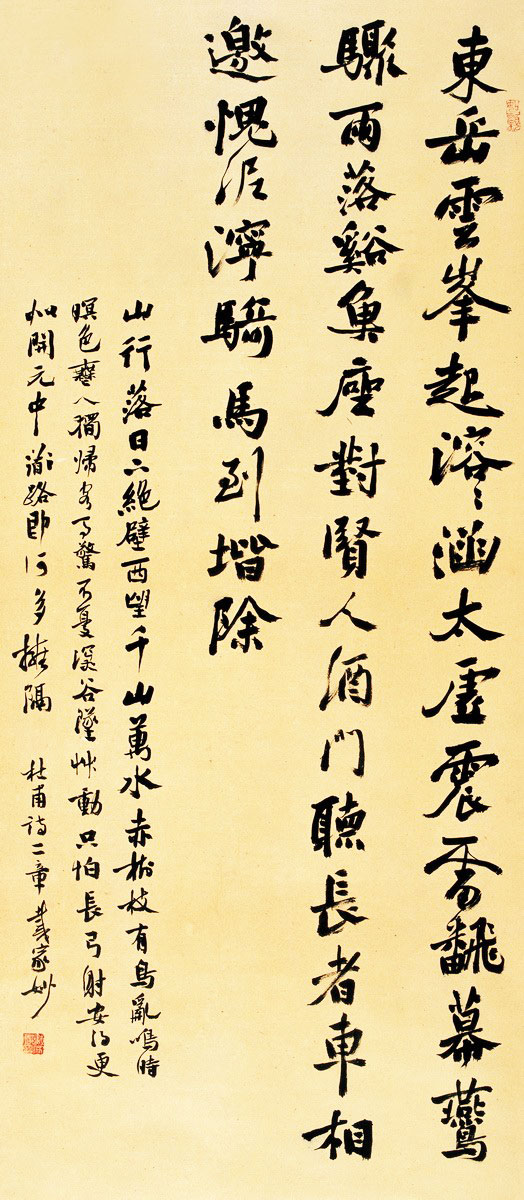 東岳雲峯起溶〻涵太虛震雷飜幕鷰
驟雨落谿魚座對賢人酒門聽長者車相
邀愧泥濘騎馬到堦除
山行落日下絕壁西望千山萬水赤樹枝有鳥亂鳴時
暝色無人獨歸客馬驚不憂深谷墜艸動只怕長弓射安得更
似開元中道路即何多擁隔 杜甫詩二章 戴家妙